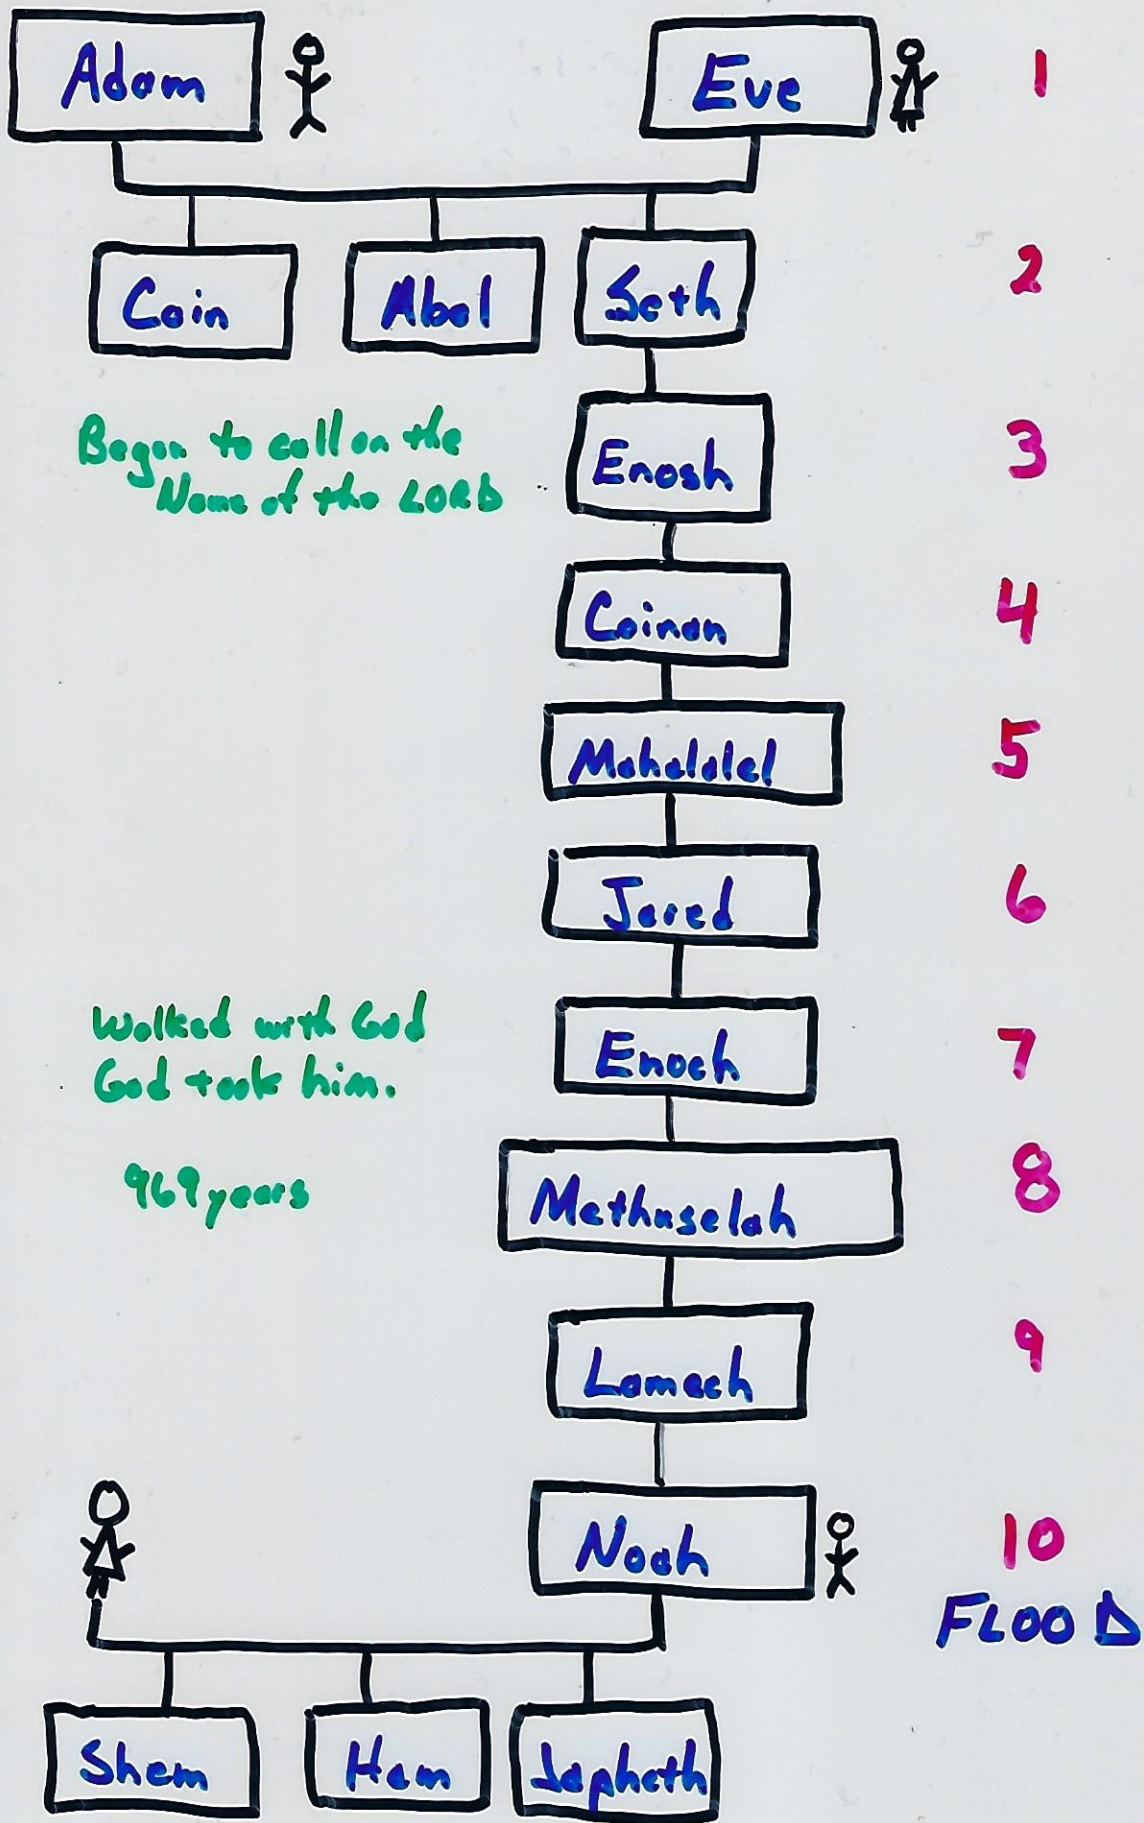 Adam Eve 1
Cain Abel Seth 2
Began to call on the
Name of the LORD
Enosh 3
Cainan 4
Mahalalel 5
Jared 6
Walked with God
God took him.
Enoch 7
969 years
Methuselah 8
Lamech 9
Noah 10
FLOOD
Shem Ham Japheth